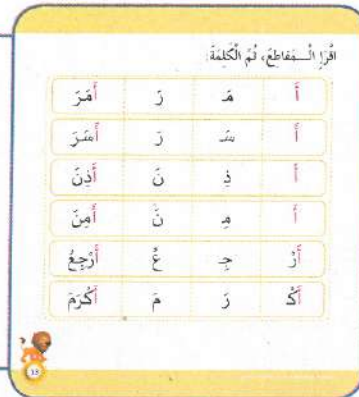 اقْرَإِ الْـــمَقاطِعَ، ثُمَّ الْكَلِمَةَ:
أَ مَـ رَ أَمَرَ
أَ سَـ رَ أَسَرَ
أَ ذِ نَ أَذِنَ
أَ مِـ نَ أَمِنَ
أَرْ جِـ عُ أَرْجِعُ
أَكْـ رَ مَ أَكْرَمَ